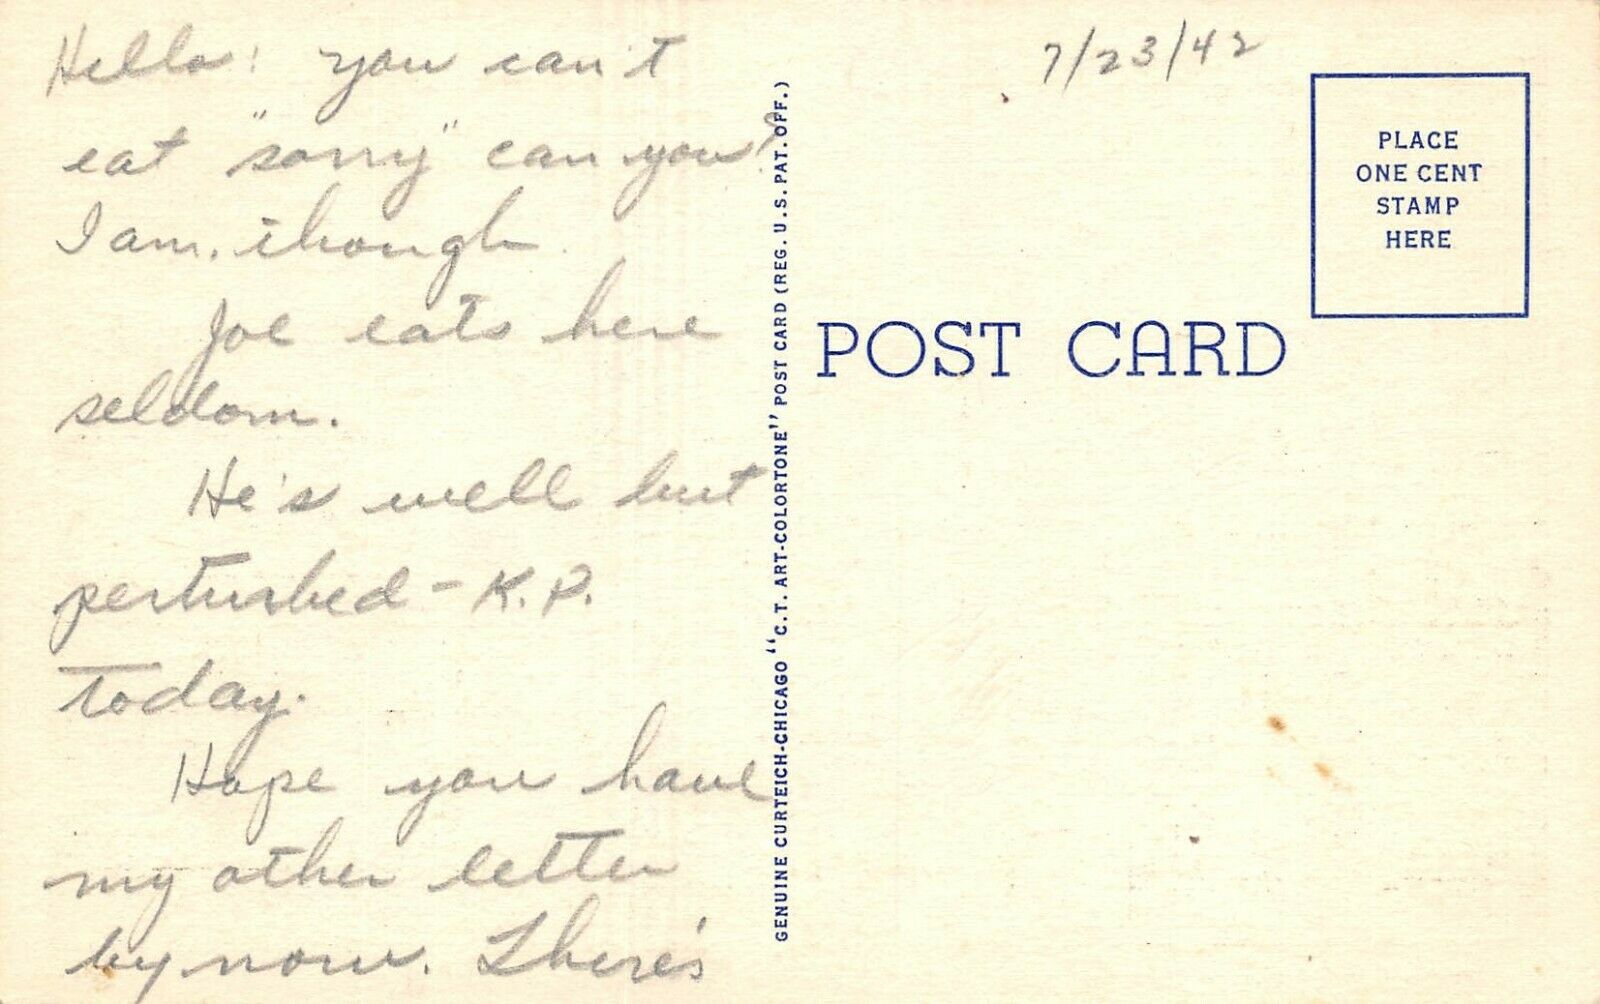 Hello! you can't
eat "sorry" can you?
I am, though.
Joe eats here
seldom.
He's well but
perturbed - K.P.
today.
Hope you have
my other letter
by now. There's
GENUINE CURTEICH-CHICAGO "C.T. ART-COLORTONE" POST CARD (REG. U.S. PAT. OFF.)
7/23/42
PLACE
ONE CENT
STAMP
HERE
POST CARD